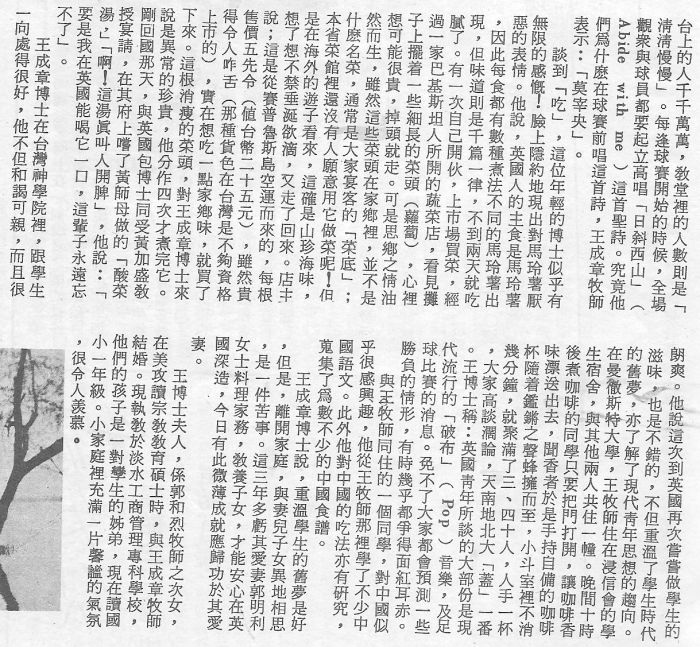 台上的人千千萬萬，教堂裡的人數則是「
清清慢慢」。每逢球賽開始的時候，全場
觀衆與球員都要起立高唱「日斜西山」（
Abide with me ）這首聖詩。究竟他
們爲什麽在球賽前唱這首詩，王成章牧師
表示：「莫宰央」。
談到「吃」，這位年輕的博士似乎有
無限的感慨！臉上隱約地現出對馬玲薯厭
惡的表情。他說，英國人的主食是馬玲薯
，因此每食都有數種煮法不同的馬玲薯出
現，但味道則是千篇一律，不到兩天就吃
膩了。有一次自己開伙，上市場買菜，經
過一家巴基斯坦人所開的蔬菜店，看見攤
子上擺着一些細長的菜頭（蘿蔔），心裡
想可能很貴，掉頭就走。可是思鄉之情油
然而生，雖然這些菜頭在家鄉裡，並不是
什麽名菜，通常是大家宴客的「菜底」；
本省菜館裡還沒有人願意用它做菜呢！但
是在海外的遊子看來，這確是山珍海味，
想了想不禁垂涎欲滴，又走了回來。店主
說；這是從賽普魯斯島空運而來的，每根
售價五先令（値台幣二十五元），雖然貴
得令人咋舌（那種貨色在台灣是不夠資格
上市的），實在想吃一點家鄉味，就買了
下來。這根消瘦的菜頭，對王成章博士來
說是異常的珍貴，他分作四次才煮完它。
剛回國那天，與英國包博士同受黃加盛教
授宴請，在其府上嚐了黃師母做的「酸菜
湯，「啊！這湯眞叫人開脾」，他說：「
要是我在英國能喝它一口，這輩子永遠忘
不了」。
王成章博士在台灣神學院裡，跟學生
一向處得很好，他不但和謁可親，而且很
朗爽。他說這次到英國再次嘗嘗做學生的
滋味，也是不錯的，不但重溫了學生時代
的舊夢，亦了解了現代青年思想的趨向。
在曼徹斯特大學，王牧師住在浸信會的學
生宿舍，與其他兩人共住一幢。晚間十時
後煮咖啡的同學只要把門打開，讓咖啡香
味漂送出去，聞香者於是手持自備的咖啡
杯隨着鏘鏘之聲蜂擁而至，小斗室裡不消
幾分鐘，就聚滿了三、四十人，人手一杯
，大家高談濶論，天南地北大「蓋」一番
。王博士稱：英國青年所談的大部份是現
代流行的「破布」（ Pop ）音樂，及足
球比賽的消息。免不了大家都會預測一些
勝負的情形，有時幾乎都爭得面紅耳赤。
與王牧師同住的一個同學，對中國似
乎很感興趣，他從王牧師那裡學了不少中
國語文。此外他對中國的吃法亦有研究，
蒐集了爲數不少的中國食譜。
王成章博士說，重溫學生的舊夢是好
，但是，離開家庭，與妻兒子女異地相思
，是一件苦事。這三年多虧其愛妻郭明利
女士料理家務，教養子女，才能安心在英
國深造，今日有此微薄成就應歸功於其愛
妻。
王博士夫人，係郭和烈牧師之次女，
在美攻讀宗教教育碩士時，與王成章牧師
結婚。現執教於淡水工商管理專科學校，
他們的孩子是一對孿生的姊弟，現在讀國
小一年級。小家庭裡充滿一片馨謐的氣氛
，很令人羡慕。